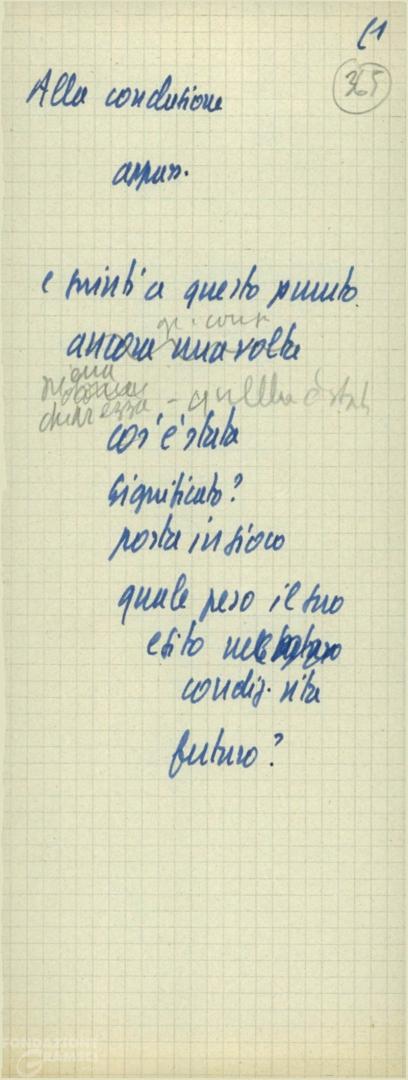 61
365
Alla conclusione
appas.
e giunti a questo punto
ancora una volta
chiarezza - quella è stata
cos'è stata
significato?
posta in gioco
quale peso il suo
esito nel
condiz. vita
futuro?
FONDAZIONE
GRAMSCI